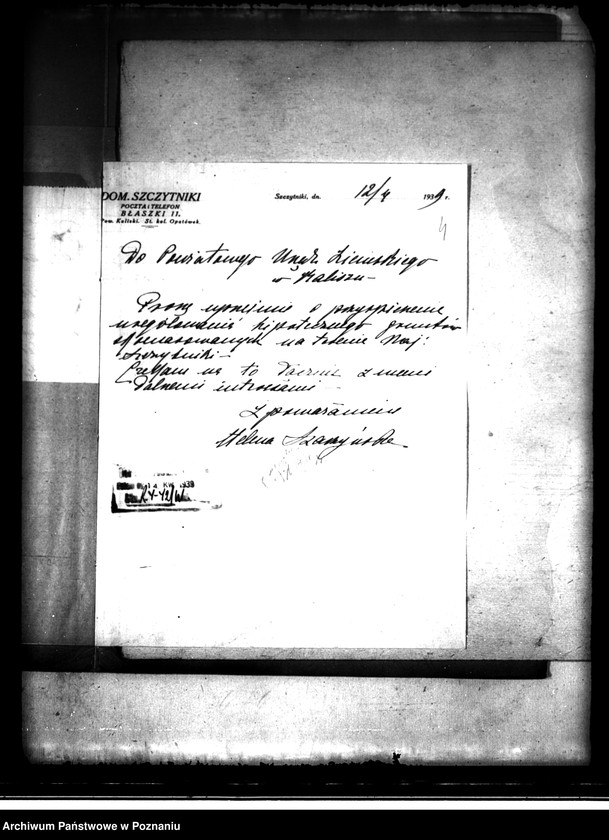 DOM. SZCZYTNIKI
POCZTA i TELEFON
BŁASZKI 11.
Pow. Kaliski. St. kol. Opatówek.
Szczytniki, dn. 12/4 1939 r.
4
Do Powiatowego Urzędu Ziemskiego
w Kaliszu –
Proszę uprzejmie o przyspieszenie
uregulowania hipotecznego gruntów
na terenie Maj:
Szczytniki –
Czekam na to łącznie z memi
dalszemi
Z poważaniem
Helena
1939
Archiwum Państwowe w Poznaniu